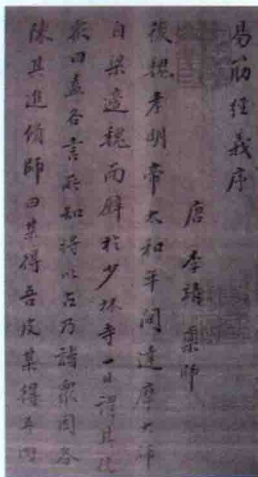 易筋經義序
唐 李靖藥師
後魏孝明帝太和年間達摩大師
自梁適魏面壁於少林寺一日謂其徒
衆曰盍各言所知將以占乃詣衆因各
陳其進修師曰某得吾皮某得吾肉